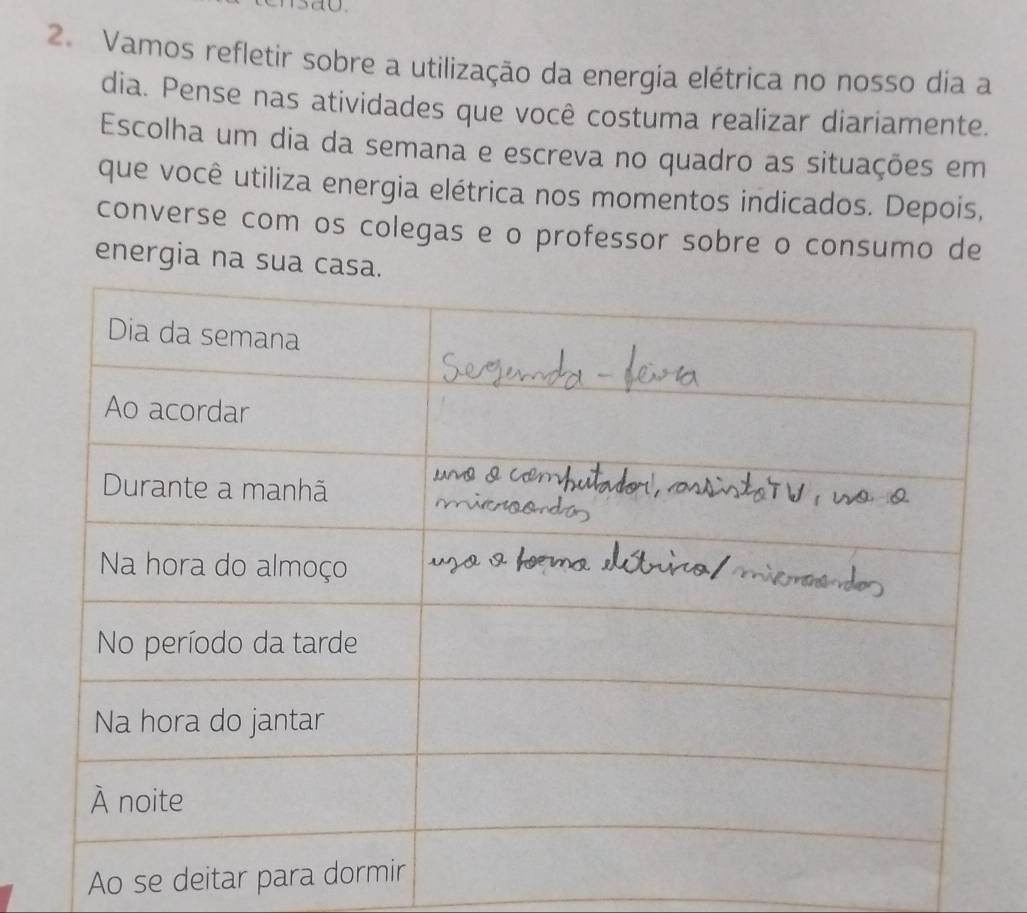 2. Vamos refletir sobre a utilização da energia elétrica no nosso dia a
dia. Pense nas atividades que você costuma realizar diariamente.
Escolha um dia da semana e escreva no quadro as situações em
que você utiliza energia elétrica nos momentos indicados. Depois,
converse com os colegas e o professor sobre o consumo de
energia na sua casa.
Dia da semana
Segunda-feira
Ao acordar
Durante a manhã
uso o computador, assisto TV, uso o
microondas
Na hora do almoço
uso a forma elétrica/microondas
No período da tarde
Na hora do jantar
À noite
Ao se deitar para dormir